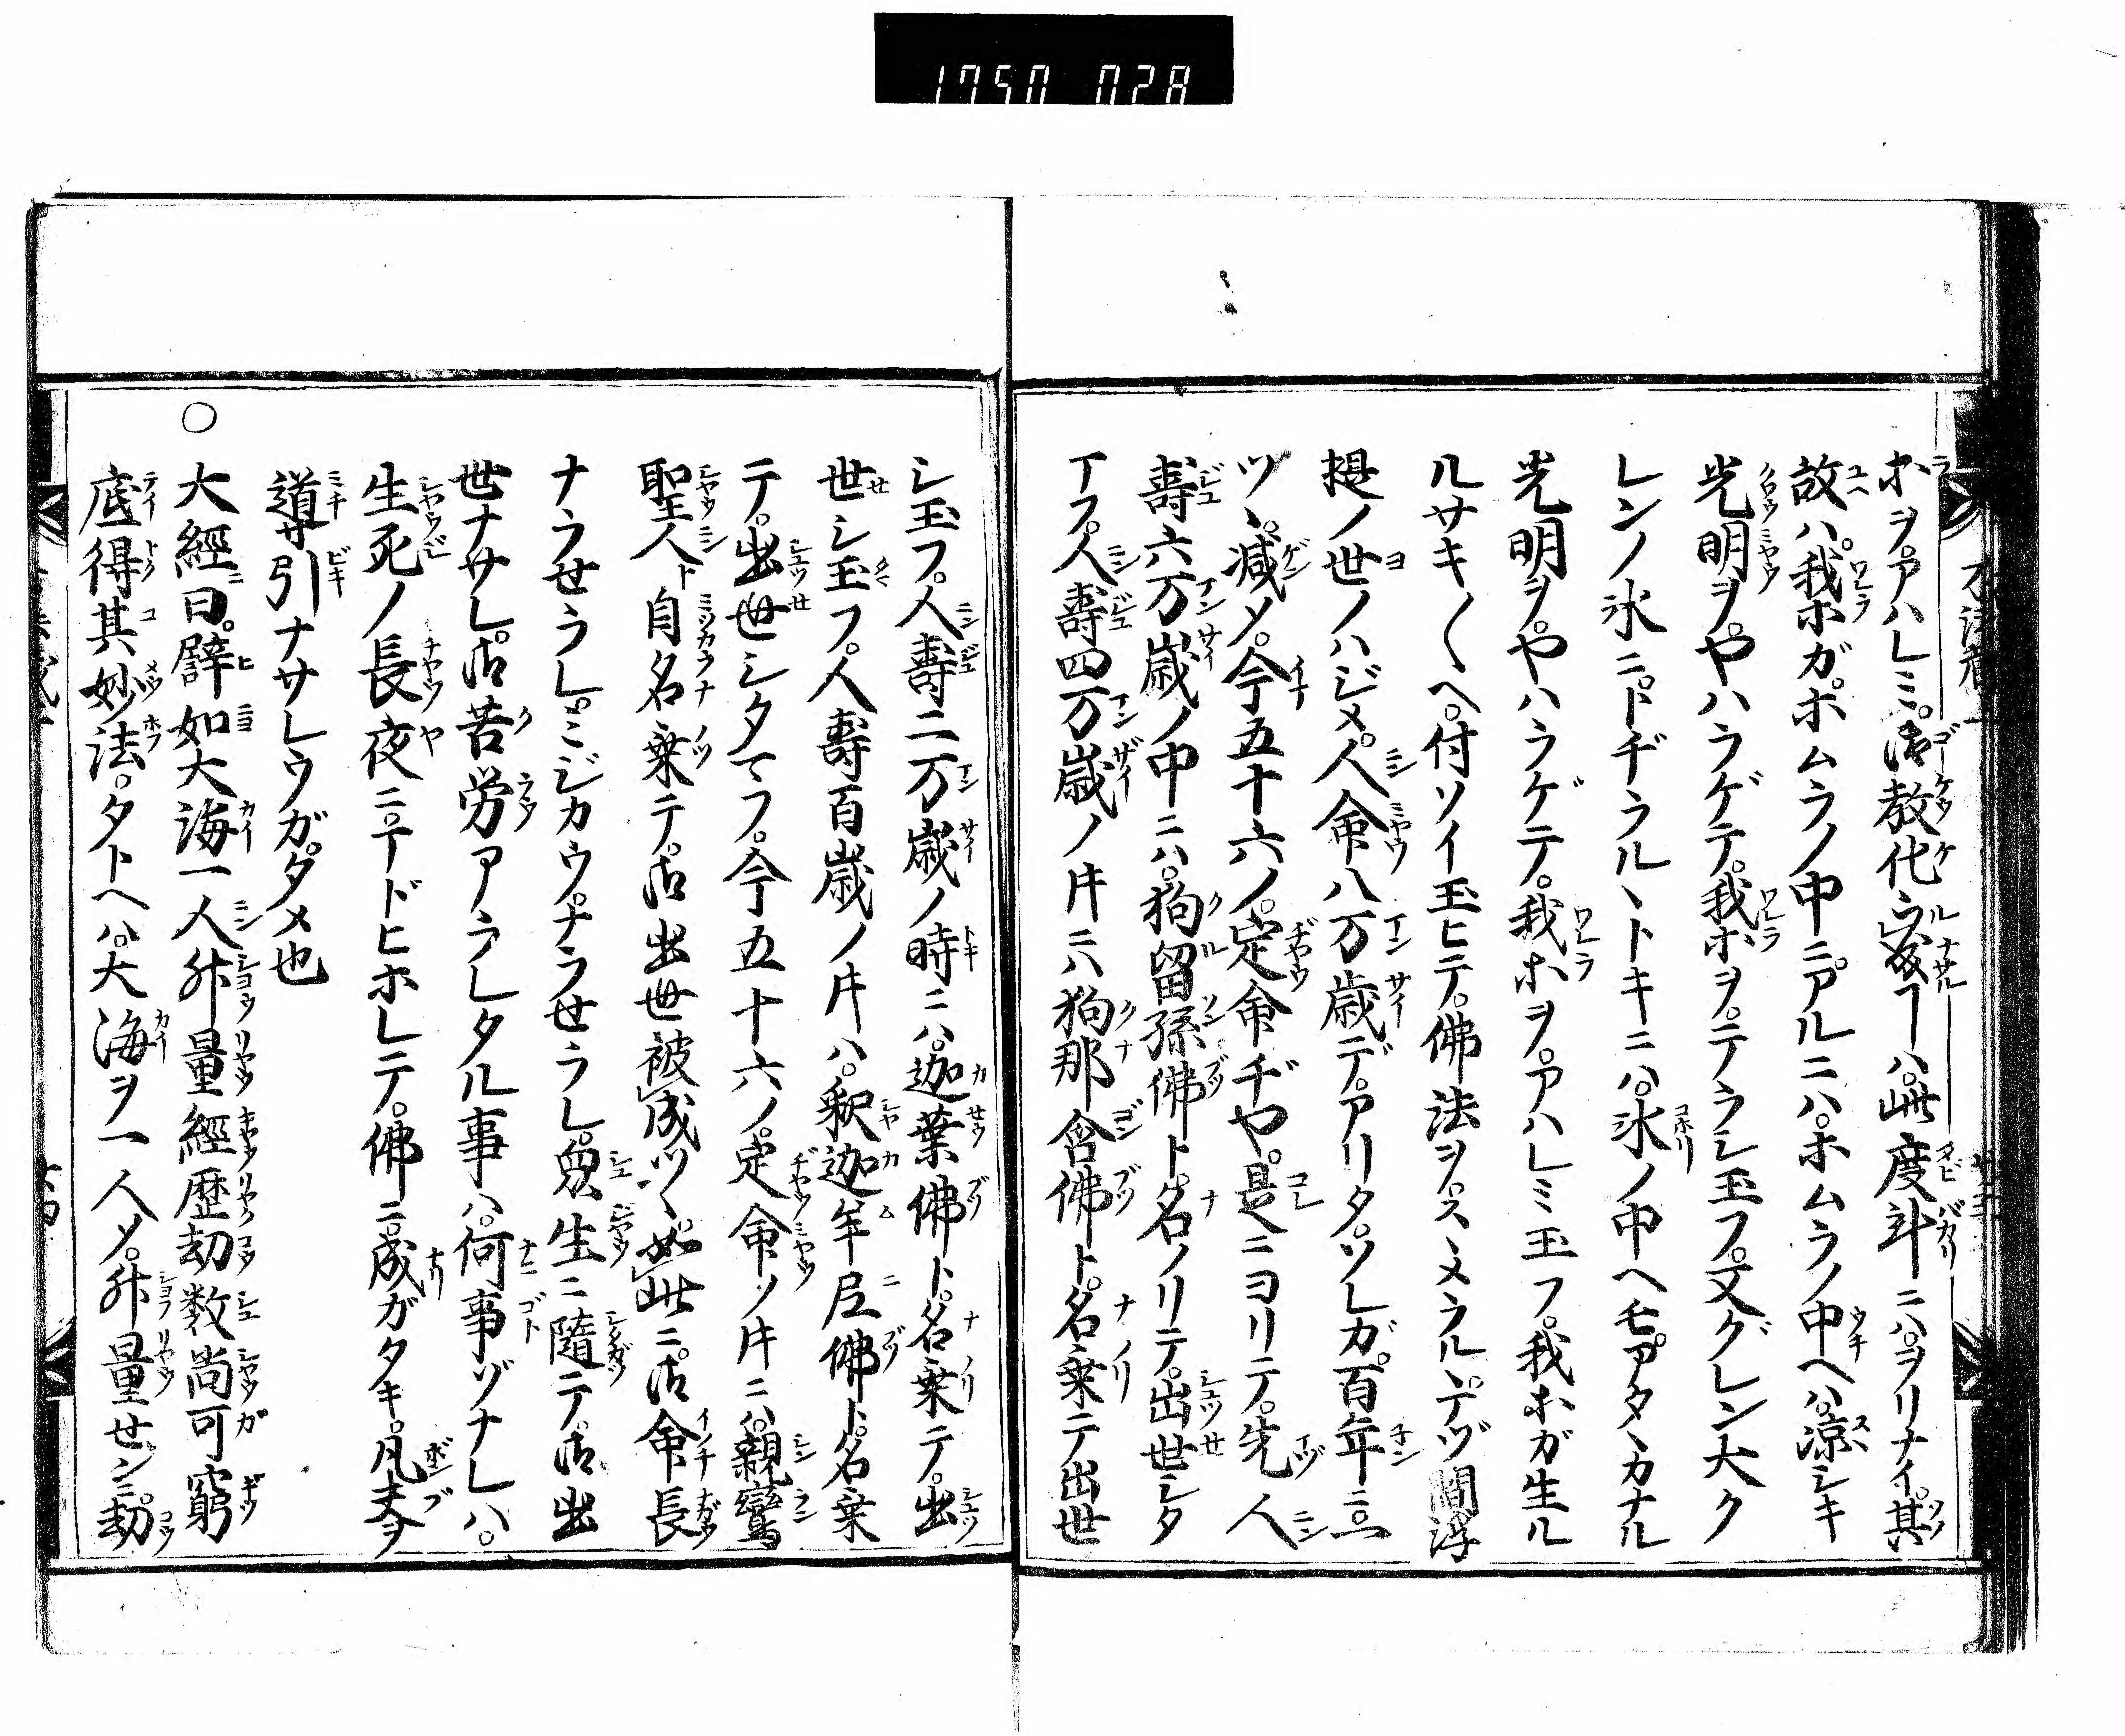 1750 028
ホヲ。アハレミ。御教化ヲ被成ルヿハ。此度斗ニハ。ヲリナイ。其
故ハ。我ホガ。ホムラノ中ニ。アルニハ。ホムラノ中ヘハ。凉シキ
光明ヲ。ヤハラゲテ。我ホヲ。テラシ玉フ。又グレン大ク
レンノ氷ニ。トヂラルヽトキニハ。氷ノ中ヘモ。アタヽカナル
光明ヲ。ヤハラゲテ。我ホヲ。アハレミ玉フ。我ホガ生ル
ルサキ〱ヘ。付ソイ玉ヒテ。佛法ヲ。スヽメラルヽ。テヅ閻浮
提ノ世ノハジメ。人命八万歳デ。アリタ。ソレガ。百年ニ一
ツヽ。減メ。今五十六ノ。定命ヂヤ。是ニヨリテ。先人
壽六万歳ノ中ニハ。狗留孫佛ト。名ノリテ。出世シタ
マフ。人壽四万歳ノ片ニハ狗那含佛ト。名乗テ出世
シ玉フ。人壽二万歳ノ時ニハ。迦葉佛ト。名乗テ。出
世シ玉フ。人壽百歳ノ片ハ。釈迦牟尼佛ト。名乗
テ。出世シタマフ。今五十六ノ。定命ノ片ニハ。親鸞
聖人ト自名乗テ。御出世被成ツヽ。如此ニ。御命長
ナラせラレ。ミジカウ。ナラせラレ。衆生ニ隨テ。御出
世ナサレ。御苦労アラレタル事ハ。何事ゾナレハ。
生死ノ長夜ニ。マドヒホレテ。佛ニ。成ガタキ。凡夫ヲ
道引ナサレウガ。タメ也
○大經曰。譬如大海一人升量經歴劫数尚可窮
底得其妙法。タトヘハ。大海ヲ一人メ。升量せンニ。劫